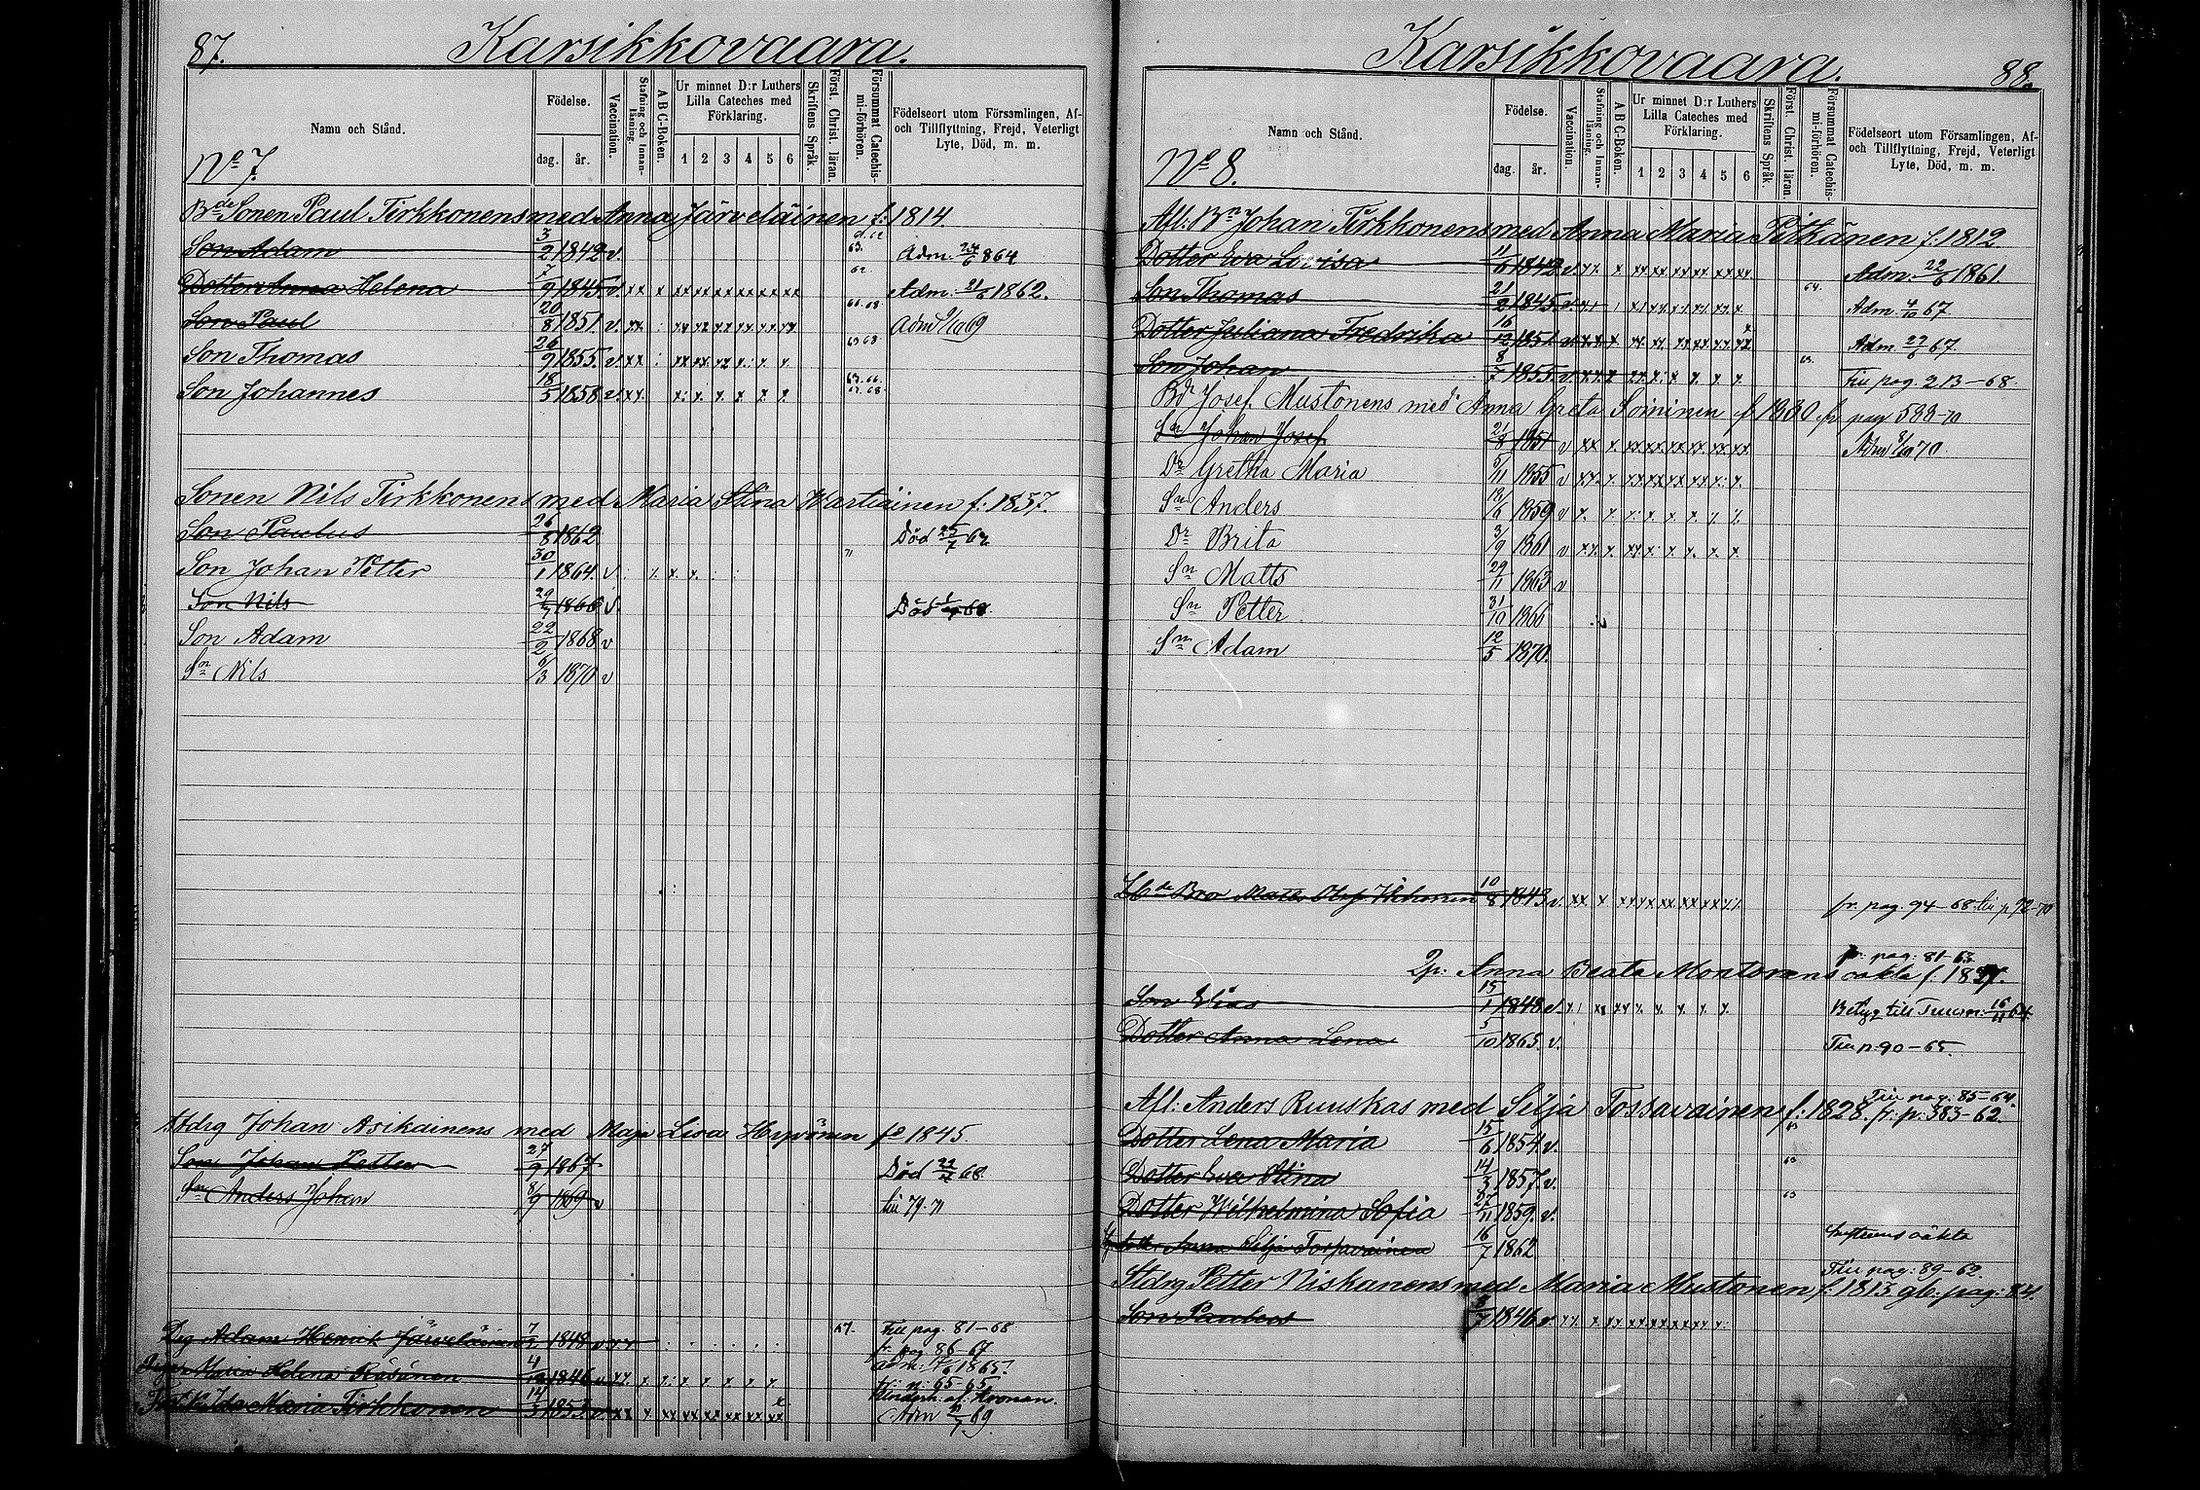 87. Karsikkovaara.
Namn och Stånd.
Födelse.
dag. år.
Vaccination.
Stafning och Innan-läsning.
A B C-Boken.
Ur minnet D:r Luthers Lilla Cateches med Förklaring.
1 2 3 4 5 6
Skriftens Språk.
Först. Christ. läran.
Försummat Catechis-mi-förhören.
Födelseort utom Församlingen, Af-
och Tillflyttning, Frejd, Veterligt
Lyte, Död, m. m.
No 7.
Bde Sonen Paul Tirkkonens med Anna Järveläinen f: 1814.
Son Adam 3/2 1842 v. 63. Adm. 24/6 864
Dotter Anna Helena 7/9 1845 v. 62. Adm. 21/6 1862.
Son Paul 20/8 1851. v. 66.68 Adm 9/10 69
Son Thomas 26/9 1855. v. 63 68.
Son Johannes 18/5 1858 v. 63.66. 67.68
Sonen Nils Tirkkonens med Maria Stina Wartiainen f: 1837.
Son Paulus 26/8 1862 Död 25/7 62.
Son Johan Petter 30/1 1864. v. 71
Son Nils 1866 v. Död 68.
Son Adam 22/2 1868 v
Sn Nils 6/3 1870 v
Johan Asikainens med Maja Lisa Hyvönen fo 1845.
Son Johan Petter 27/9 1867 Död 68.
Sn Anders Johan 8/9 1869 v till 79.71
Drg Adam Henrik Järveläinen 7/2 1848 v 67. Till pag. 81-68
fr. pag 86-67
Maria Helena Räsänen 4 1846 v adm: 1865.
fr: p: 65-65
Maria Tirkkonen 14/3 1853. v. Underh. af Kronan.
Adm 69.
Karsikkovaara. 88.
Namn och Stånd.
Födelse.
dag. år.
Vaccination.
Stafning och Innan-läsning.
A B C-Boken.
Ur minnet D:r Luthers Lilla Cateches med Förklaring.
1 2 3 4 5 6
Skriftens Språk.
Först. Christ. läran.
Försummat Catechis-mi-förhören.
Födelseort utom Församlingen, Af-
och Tillflyttning, Frejd, Veterligt
Lyte, Död, m. m.
No 8.
Afl: Bn Johan Tirkkonens med Anna Maria Pitkänen f: 1812
Dotter Eva Lovisa 11/6 1842 v. Adm. 22/6 1861.
Son Thomas 21/2 1845 v. 64. Adm. 4/10 67
Dotter Juliana Fredrika 16/12 1851 v. Adm. 67.
Son Johan 8/7 1855 v. 63. Till pag. 213-68.
Bdr Josef Mustonens med Anna Greta Soininen f 1830 fr pag 533-70
Sn Johan Josef 21/8 1851 v Adm 8/10 70.
Dr Gretha Maria 5/11 1855 v
Sn Anders 13/6 1859 v
Dr Brita 3/9 1861 v
Sn Matts 29/11 1863 v
Sn Petter 31/10 1866
Sn Adam 12/5 1870.
Bror Matts Olof 10/8 1843 v. fr. pag. 94-68. till p 92-70
fr. pag: 81-63
Qp: Anna Beata Montonens oäkta f. 18
Son Elias 15/1 1848 v. Betyg till 64.
Dotter Anna Lena 5/10 1865. v. Till p. 90-65.
Till pag: 85-64.
Afl: Anders Ruuskas med Silja Tossavainen f: 1828. fr. p: 383-62.
Dotter Lena Maria 15/6 1854. v. 63
Dotter Eva Stina 14/3 1857. v. 63
Dotter Wilhelmina Sofia 27/11 1859. v. 63
Dotter Anna Silja Tossavainen 16/7 1862 oäkta
Till pag: 89-62.
Stdrg Petter Niskanens med Maria Mustonen f: 1813 gb: pag: 84.
Son Paulus 1846 v.